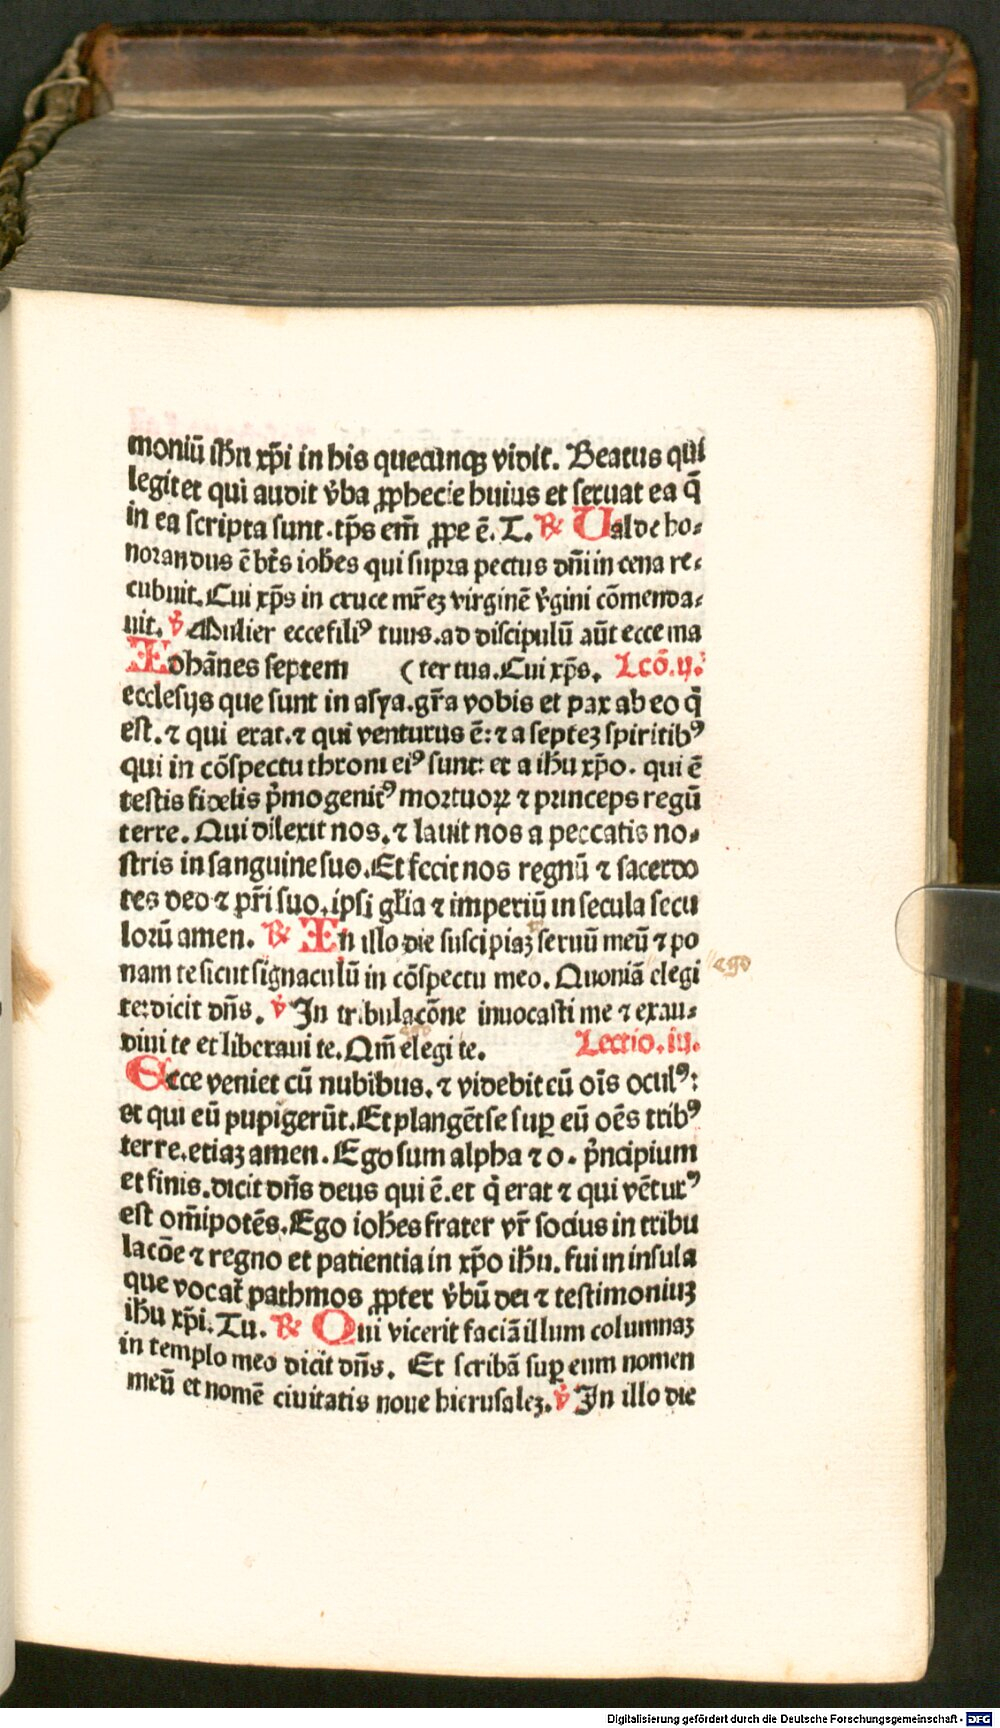 moniū ihu xp̄i in his quecūnqȝ vidit. Beatus qui
legit et qui audit v̓ba ꝓphecie huius et seruat ea q̄
in ea scripta sunt. tp̄s em̄ ꝓpe ē. T. ℟ Ualde ho⸗
norandus ē bt̄s ioh̄es qui supra pectus dn̄i in cena re⸗
cubuit. Cui xp̄s in cruce mr̄eȝ virginē v̓gini cōmenda⸗
uit. ℣ Mulier ecce filiꝰ tuus. ad discipulū aūt ecce ma
Iohānes septem (ter tua. Cui xp̄s. Lcō. ij.
ecclesijs que sunt in asya. gr̄a vobis et pax ab eo q̄
est. ⁊ qui erat. ⁊ qui venturus ē: ⁊ a septeȝ spiritibꝰ
qui in cōspectu throni eiꝰ sunt: et a ihu xp̄o. qui ē
testis fidelis p̓mogenitꝰ mortuoꝝ ⁊ princeps regū
terre. Qui dilexit nos. ⁊ lauit nos a peccatis no⸗
stris in sanguine suo. Et fecit nos regnū ⁊ sacerdo
tes deo ⁊ pr̄i suo, ipsi gl̄ia ⁊ imperiū in secula secu
lorū amen. ℟ In illo die suscipiaȝ seruū meū ⁊ po
nam te sicut signaculū in cōspectu meo. Quoniā elegi ego
te: dicit dn̄s. ℣ In tribulacōne inuocasti me ⁊ exau⸗
ego
diui te et liberaui te. Qm̄ elegi te. Lectio. iij.
Ecce veniet cū nubibus. ⁊ videbit eū oīs oculꝰ:
et qui eū pupigerūt. Et plangēt se suꝑ eū oēs tribꝰ
terre. etiaȝ amen. Ego sum alpha ⁊ o. p̓ncipium
et finis. dicit dn̄s deus qui ē. et q̄ erat ⁊ qui vēturꝰ
est om̄ipotēs. Ego ioh̄es frater vr̄ socius in tribu
lacōe ⁊ regno et patientia in xp̄o ihu. fui in insula
que vocat̄ pathmos ꝓpter v̓bū dei ⁊ testimoniuȝ
ihu xp̄i. Tu. ℟ Qui vicerit faciā illum columnaȝ
in templo meo dicit dn̄s. Et scribā suꝑ eum nomen
meū et nomē ciuitatis noue hierusaleȝ. ℣ In illo die
Digitalisierung gefördert durch die Deutsche Forschungsgemeinschaft - DFG